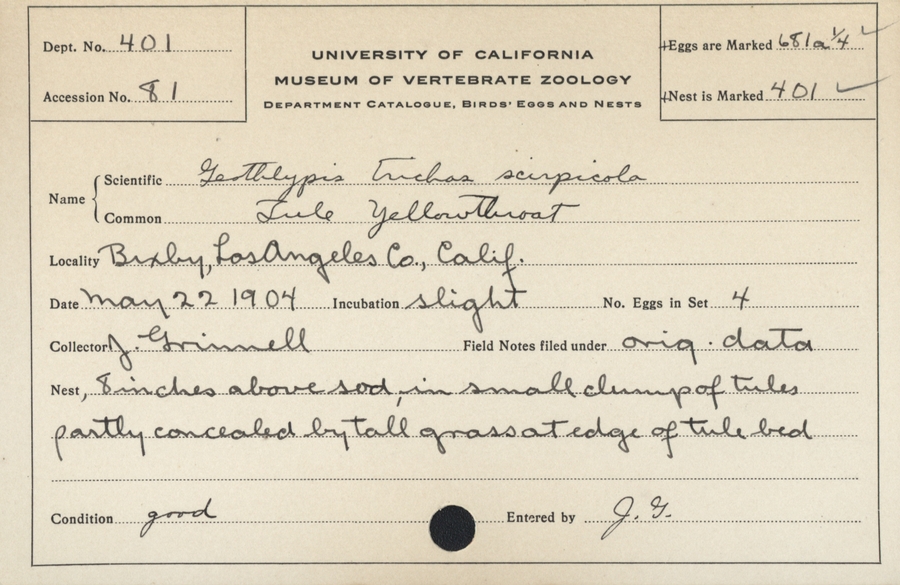 Dept. No. 401
Accession No. 81
UNIVERSITY OF CALIFORNIA
MUSEUM OF VERTEBRATE ZOOLOGY
DEPARTMENT CATALOGUE, BIRDS' EGGS AND NESTS
Eggs are Marked 681a 1/4
Nest is Marked 401
Name { Scientific Geothlypis trichas scirpicola
Common Tule Yellowthroat
Locality Bixby, Los Angeles Co., Calif.
Date May 22 1904 Incubation slight No. Eggs in Set 4
Collector J. Grinnell Field Notes filed under orig. data
Nest, 8 inches above sod, in small clump of tules
partly concealed by tall grass at edge of tule bed
Condition good Entered by J. G.